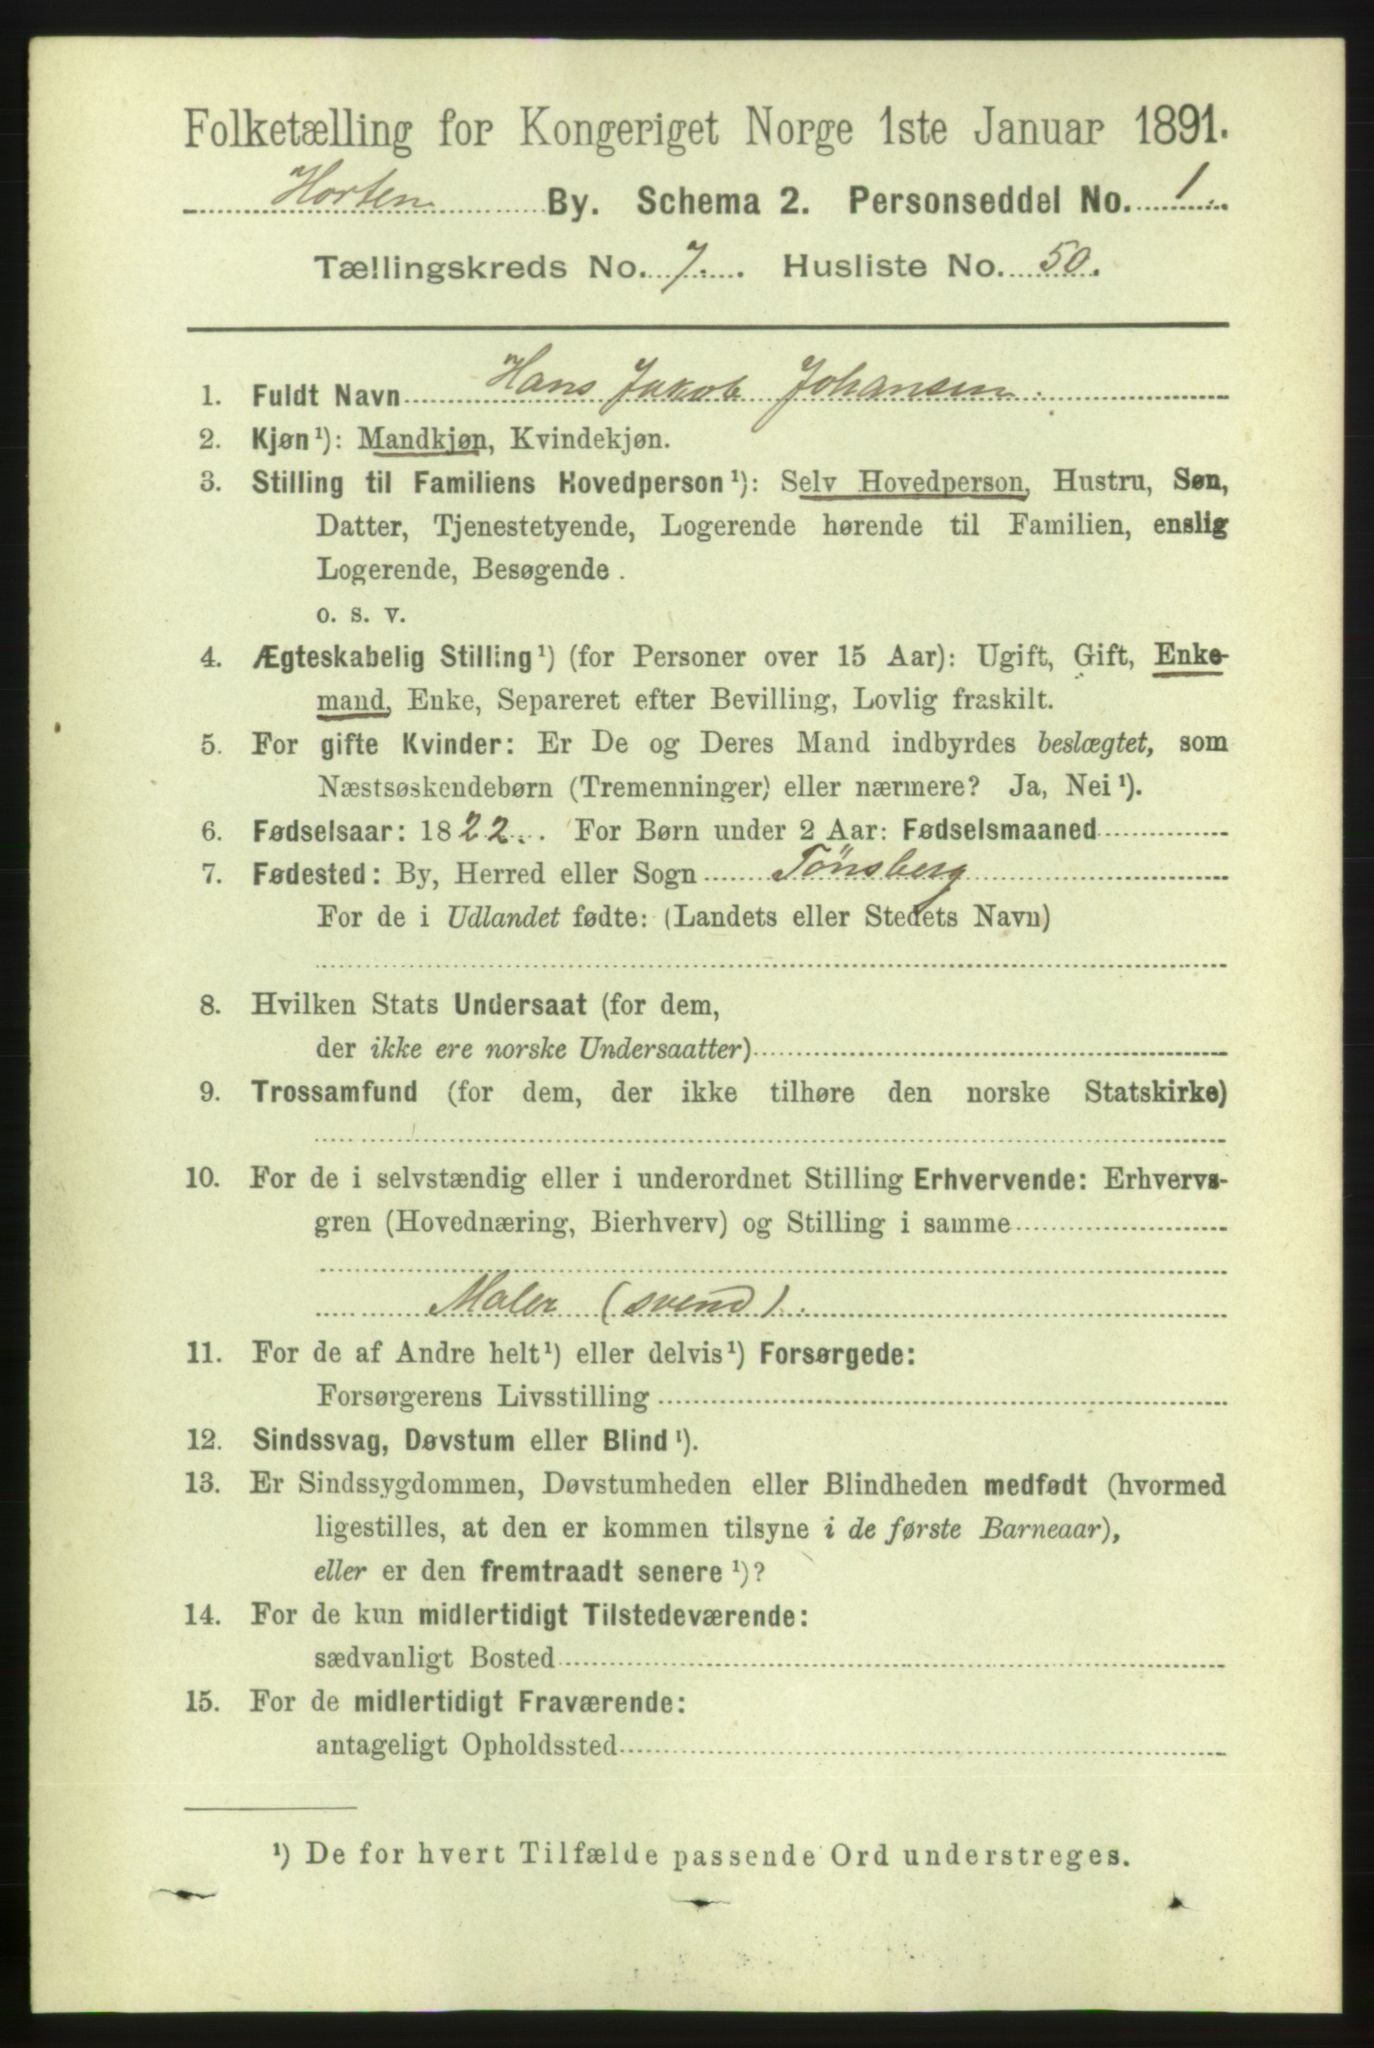 Folketælling for Kongeriget Norge 1ste Januar 1891.
Horten By. Schema 2. Personseddel No. 1.
Tællingskreds No. 7. Husliste No. 50.
1. Fuldt Navn Hans Jakob Johansen.
2. Kjøn¹): Mandkjøn, Kvindekjøn.
3. Stilling til Familiens Hovedperson¹): Selv Hovedperson, Hustru, Søn,
Datter, Tjenestetyende, Logerende hørende til Familien, enslig
Logerende, Besøgende .
o. s. v.
4. Ægteskabelig Stilling¹) (for Personer over 15 Aar): Ugift, Gift, Enke-
mand, Enke, Separeret efter Bevilling, Lovlig fraskilt.
5. For gifte Kvinder: Er De og Deres Mand indbyrdes beslægtet, som
Næstsøskendebørn (Tremenninger) eller nærmere? Ja, Nei¹).
6. Fødselsaar: 1822. For Børn under 2 Aar: Fødselsmaaned
7. Fødested: By, Herred eller Sogn Tönsberg
For de i Udlandet fødte: (Landets eller Stedets Navn)
8. Hvilken Stats Undersaat (for dem,
der ikke ere norske Undersaatter)
9. Trossamfund (for dem, der ikke tilhøre den norske Statskirke)
10. For de i selvstændig eller i underordnet Stilling Erhvervende: Erhvervs-
gren (Hovednæring, Bierhverv) og Stilling i samme
Maler (svend).
11. For de af Andre helt¹) eller delvis¹) Forsørgede:
Forsørgerens Livsstilling
12. Sindssvag, Døvstum eller Blind¹).
13. Er Sindssygdommen, Døvstumheden eller Blindheden medfødt (hvormed
ligestilles, at den er kommen tilsyne i de første Barneaar),
eller er den fremtraadt senere¹)?
14. For de kun midlertidigt Tilstedeværende:
sædvanligt Bosted
15. For de midlertidigt Fraværende:
antageligt Opholdssted
¹) De for hvert Tilfælde passende Ord understreges.